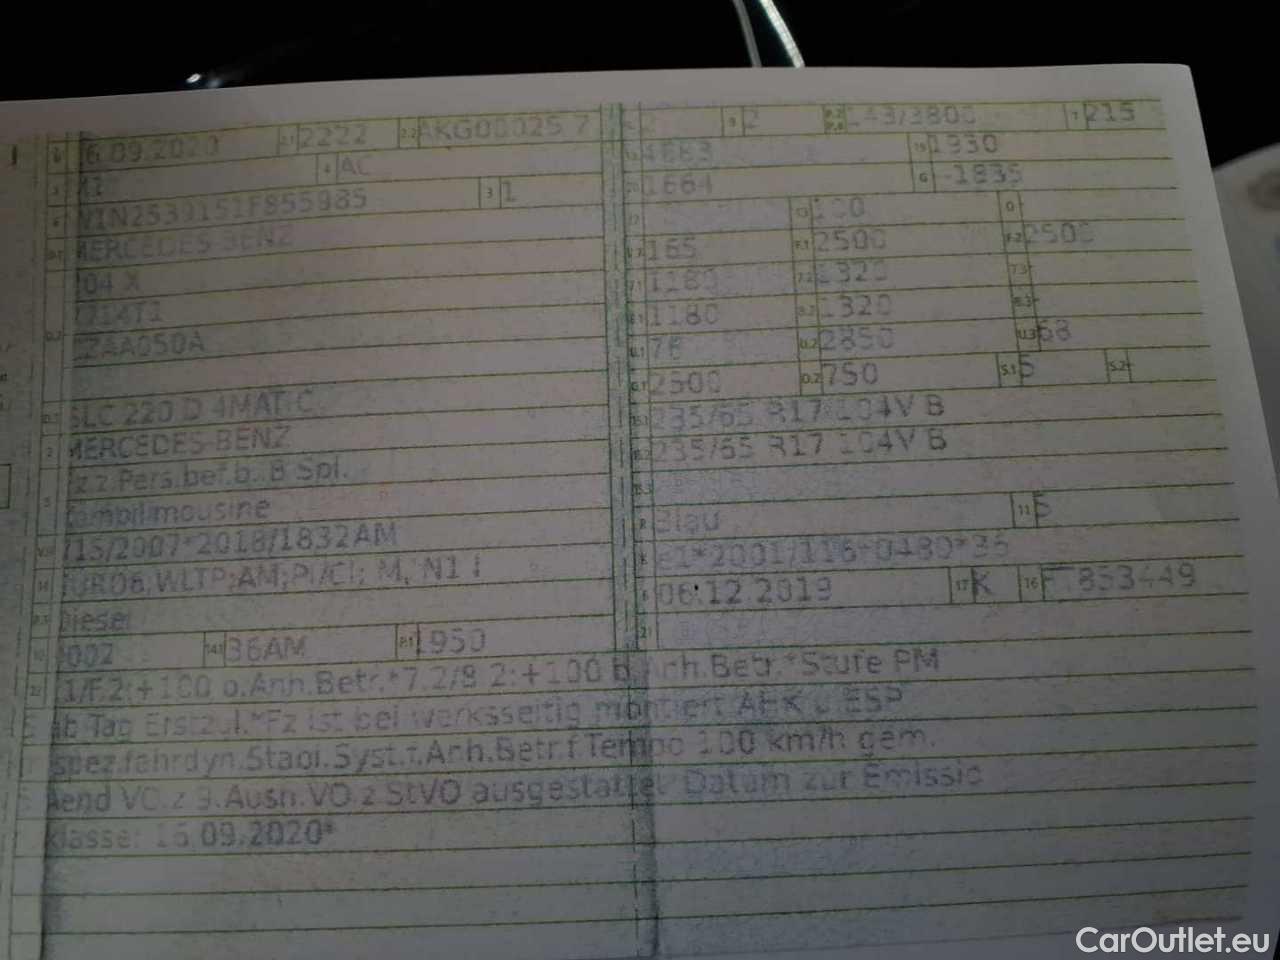 6.09.2020 2.1 2222 2.2 AKG00025 7
4 AC
W1N2539151F855985 3 1
D.1 MERCEDES-BENZ
204 X
D.2 ZZAA050A
D.3 GLC 220 D 4MATIC
2 MERCEDES-BENZ
5 Fz.z.Pers.bef.b. 8 Spl.
Kombilimousine
V.9 715/2007*2018/1832AM
14 EURO6;WLTP;AM;PI/CI; M, N1 I
P.3 Diesel
10 0002 14.1 36AM P.1 1950
9 2 P.2 P.4 143/3800 T 215
18 4663 19 1930
20 1664 G -1835
12 - 13 100 Q -
V.7 165 F.1 2500 F.2 2500
7.1 1180 7.2 1320 7.3 -
8.1 1180 8.2 1320 8.3 -
U.1 76 U.2 2850 U.3 68
O.1 2500 O.2 750 S.1 5 S.2 -
15.1 235/65 R17 104V B
15.2 235/65 R17 104V B
15.3
R Blau 11 5
K e1*2001/116*0480*36
6 06.12.2019 17 K 16
21
22 .1/F.2:+100 b.Anh.Betr.*7.2/8.2:+100 b.Anh.Betr.*Stufe PM
5 ab Tag Erstzul.*Fz ist bei werksseitig montiert AHK u ESP
spez.fahrdyn.Stabi.Syst.f.Anh.Betr.f.Tempo 100 km/h gem.
Aend VO.z 9.Ausn.VO.z StVO ausgestattet* Datum zur Emissio
klasse: 16.09.2020*
CarOutlet.eu